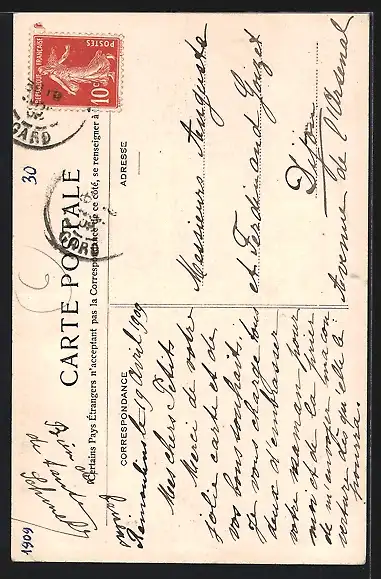 CARTE POSTALE
(Certains Pays Étrangers n'acceptent pas la Correspondance de ce côté, se renseigner à
CORRESPONDANCE
ADRESSE
REPUBLIQUE FRANÇAISE
POSTES
10c
GARD
GARD
30
1909
Remoulins le 19 Avril 1909
Mes chers Petits
Merci de votre
jolie carte et de
vos bons souhaits.
Je vous charge tous
deux d'embrasser
votre maman pour
moi et de la prier
de m'envoyer ma con
verture dès qu'elle le
pourra.
Messieurs Auguste
et Ferdinand
Dijon
Avenue de l'Arsenal